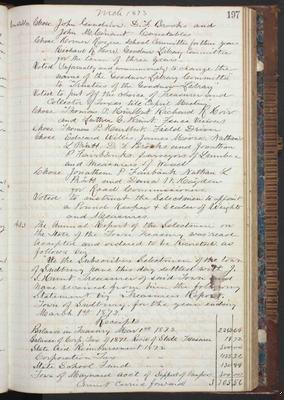 March 1873
197
Chose John Goodnow, D. F. Brooks and
John McConnart Constables
Chose Homer Rogers School Committee for three years
Chose Richard R. Hoar Goodnow Library Committee
for the term of three years
Voted Unanimously and imme to change the
name of the Goodnow Library Committee
to Trustees of the Goodnow Library
Voted to put off the choice of Treasurer and
Collector of Taxes till April Meeting
Chose Thomas P. Hurlbut, Richard R. Hoar
and Luther E. Hunt Fence Viewers
Chose Thomas P. Hurlbut Field Driver
Chose Edward Willis, James Moore, Nathan
L. Pratt, D. F. Brooks and Jonathan
P. Fairbanks Surveyors of Lumber
and Measurers of Wood
Chose Jonathan P. Fairbank, Nathan L.
Pratt and Hayden
for Road Commissioners
Voted to instruct the Selectmen to appoint
a Pound Keeper & Sealer of Weight
and Measures
The Annual Report of the Selectmen on
the State of the Town Treasury was read
accepted and ordered to be Recorded as
follows viz
We the Subscribers Selectmen of the town
of Sudbury have this day settled with J.
S. Hunt Treasurer of said Town and
have received from him the following
Statement viz Treasurers Report
Town of Sudbury for the year ending
March 1st 1873
Receipts
Balance in Treasury Mar 1st 1872
Balance of Corp. Tax of 1871 Recd of State Treasurer
State Aid Reimbursement 1872
Corporation Tax
State School Fund
Town of Maynard acct of Support of Paupers
Amount carried forward